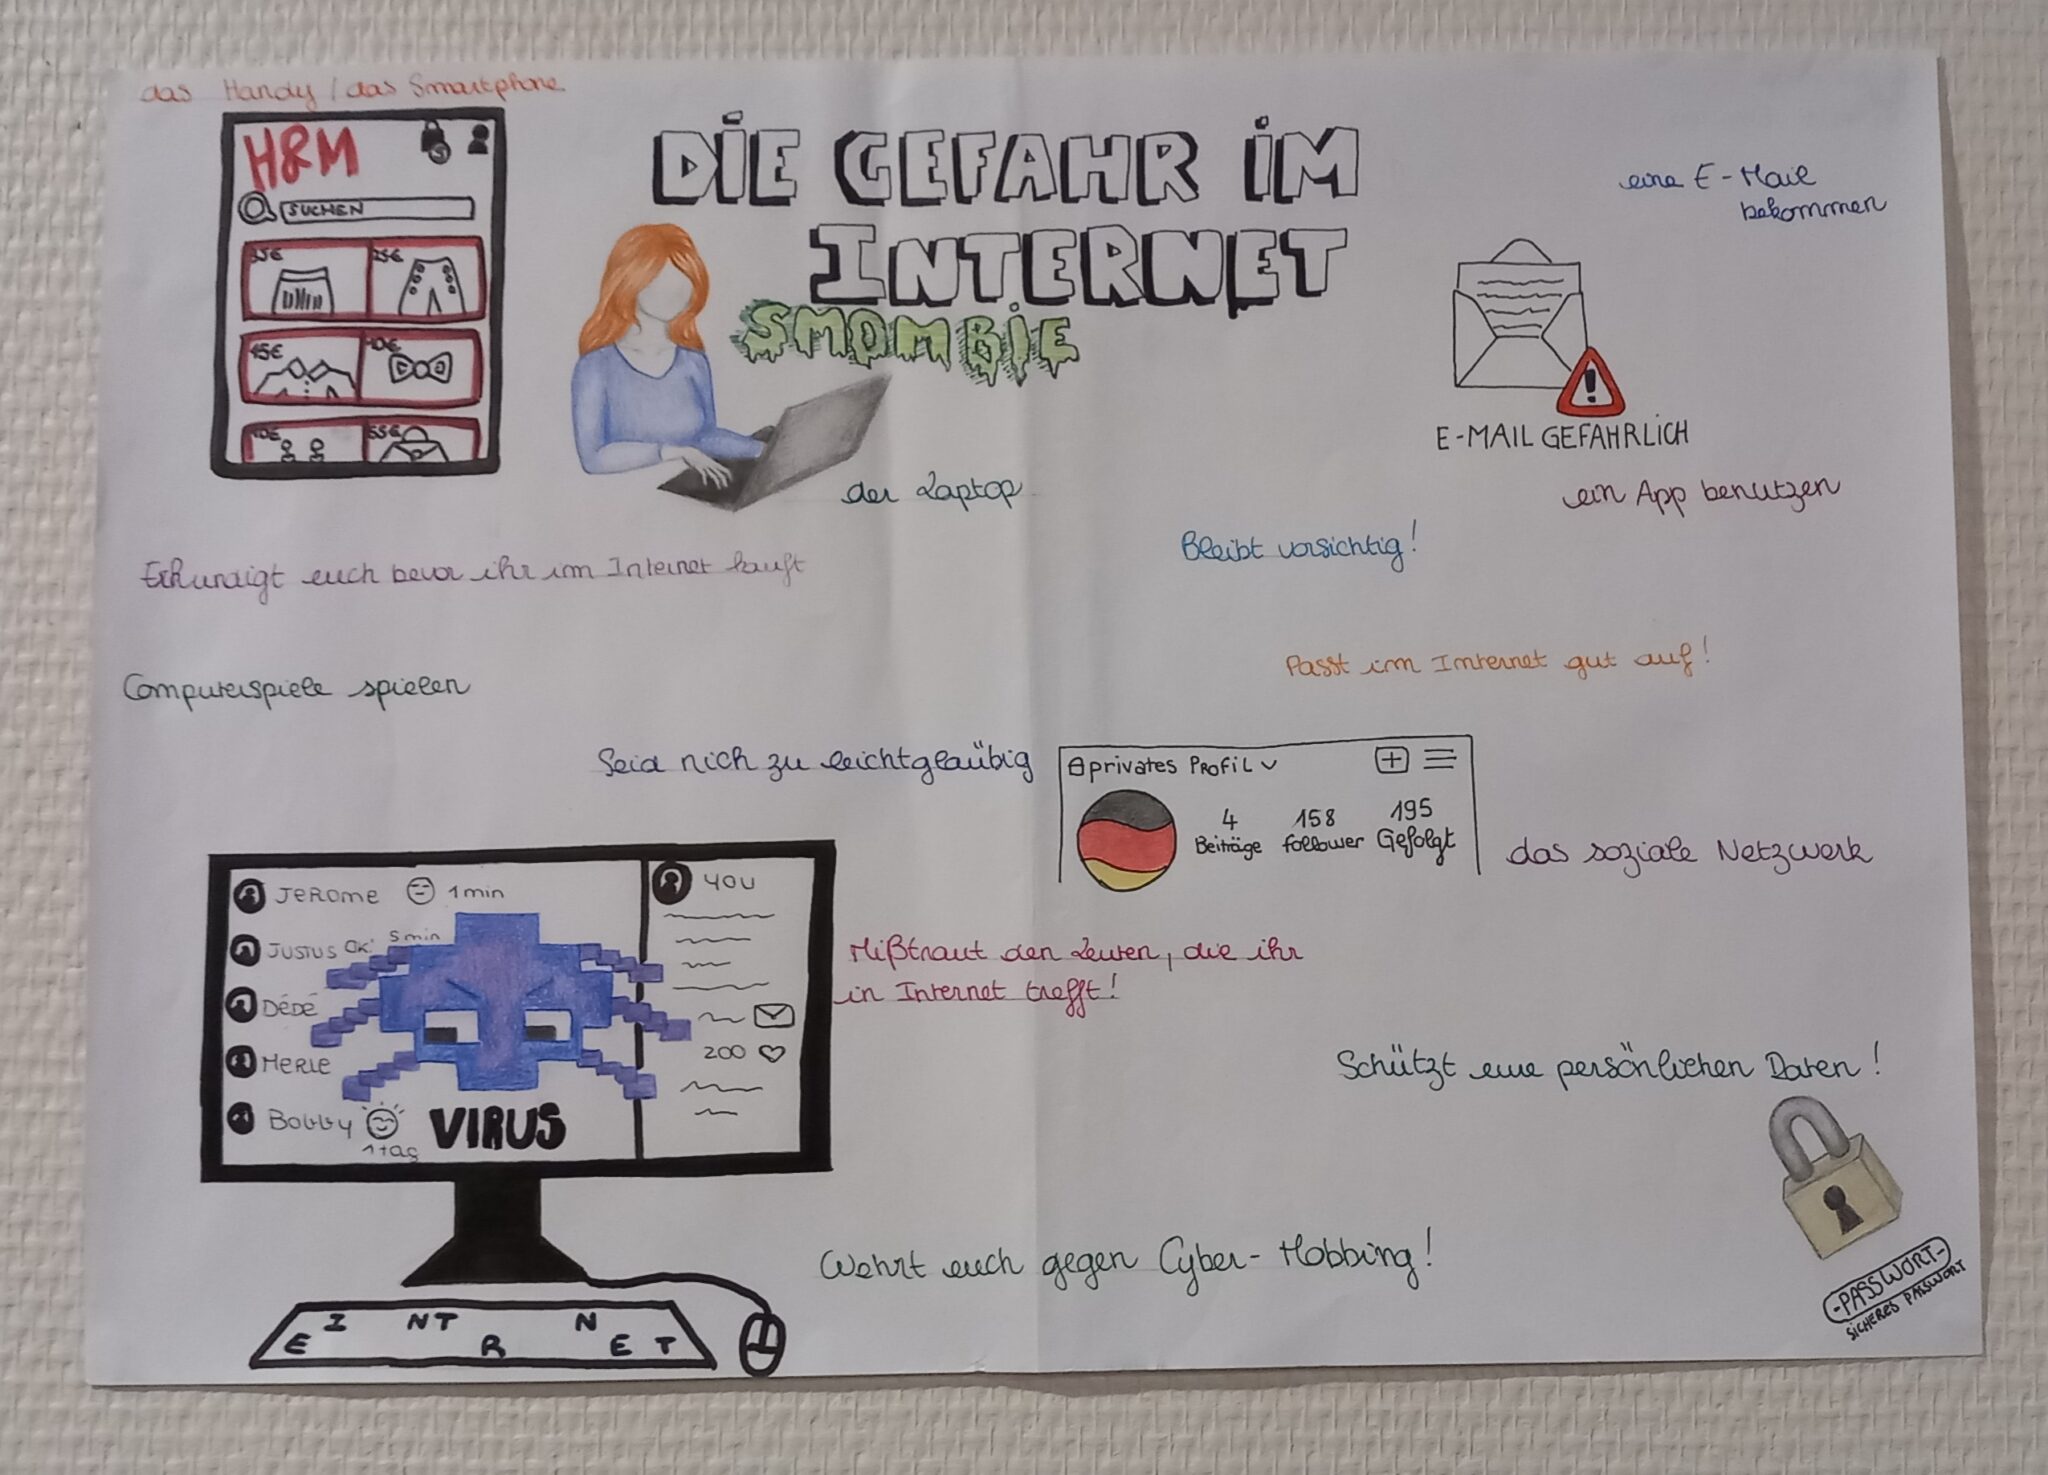 das Handy / das Smartphone
H&M
SUCHEN
35€
25€
15€
10€
10€
55€
DIE GEFAHR IM
INTERNET
SMOMBIE
der Laptop
eine E-Mail
bekommen
E-MAIL GEFAHRLICH
ein App benutzen
Bleibt vorsichtig!
Erkundigt euch bevor ihr im Internet kauft
Passt im Internet gut auf!
Computerspiele spielen
Seid nich zu leichtglaübig
privates Profil
4
158
195
Beiträge
follower
Gefolgt
das soziale Netzwerk
Jerome 1 min
Justus OK! 5 min
Dédé
Merle
Bobby
1 tag
VIRUS
YOU
200
Mißtraut den Leuten, die ihr
in Internet trefft!
Schützt eure persönlichen Daten!
Wehrt euch gegen Cyber-Mobbing!
-PASSWORT-
SICHERES PASSWORT
E I NT R N E T